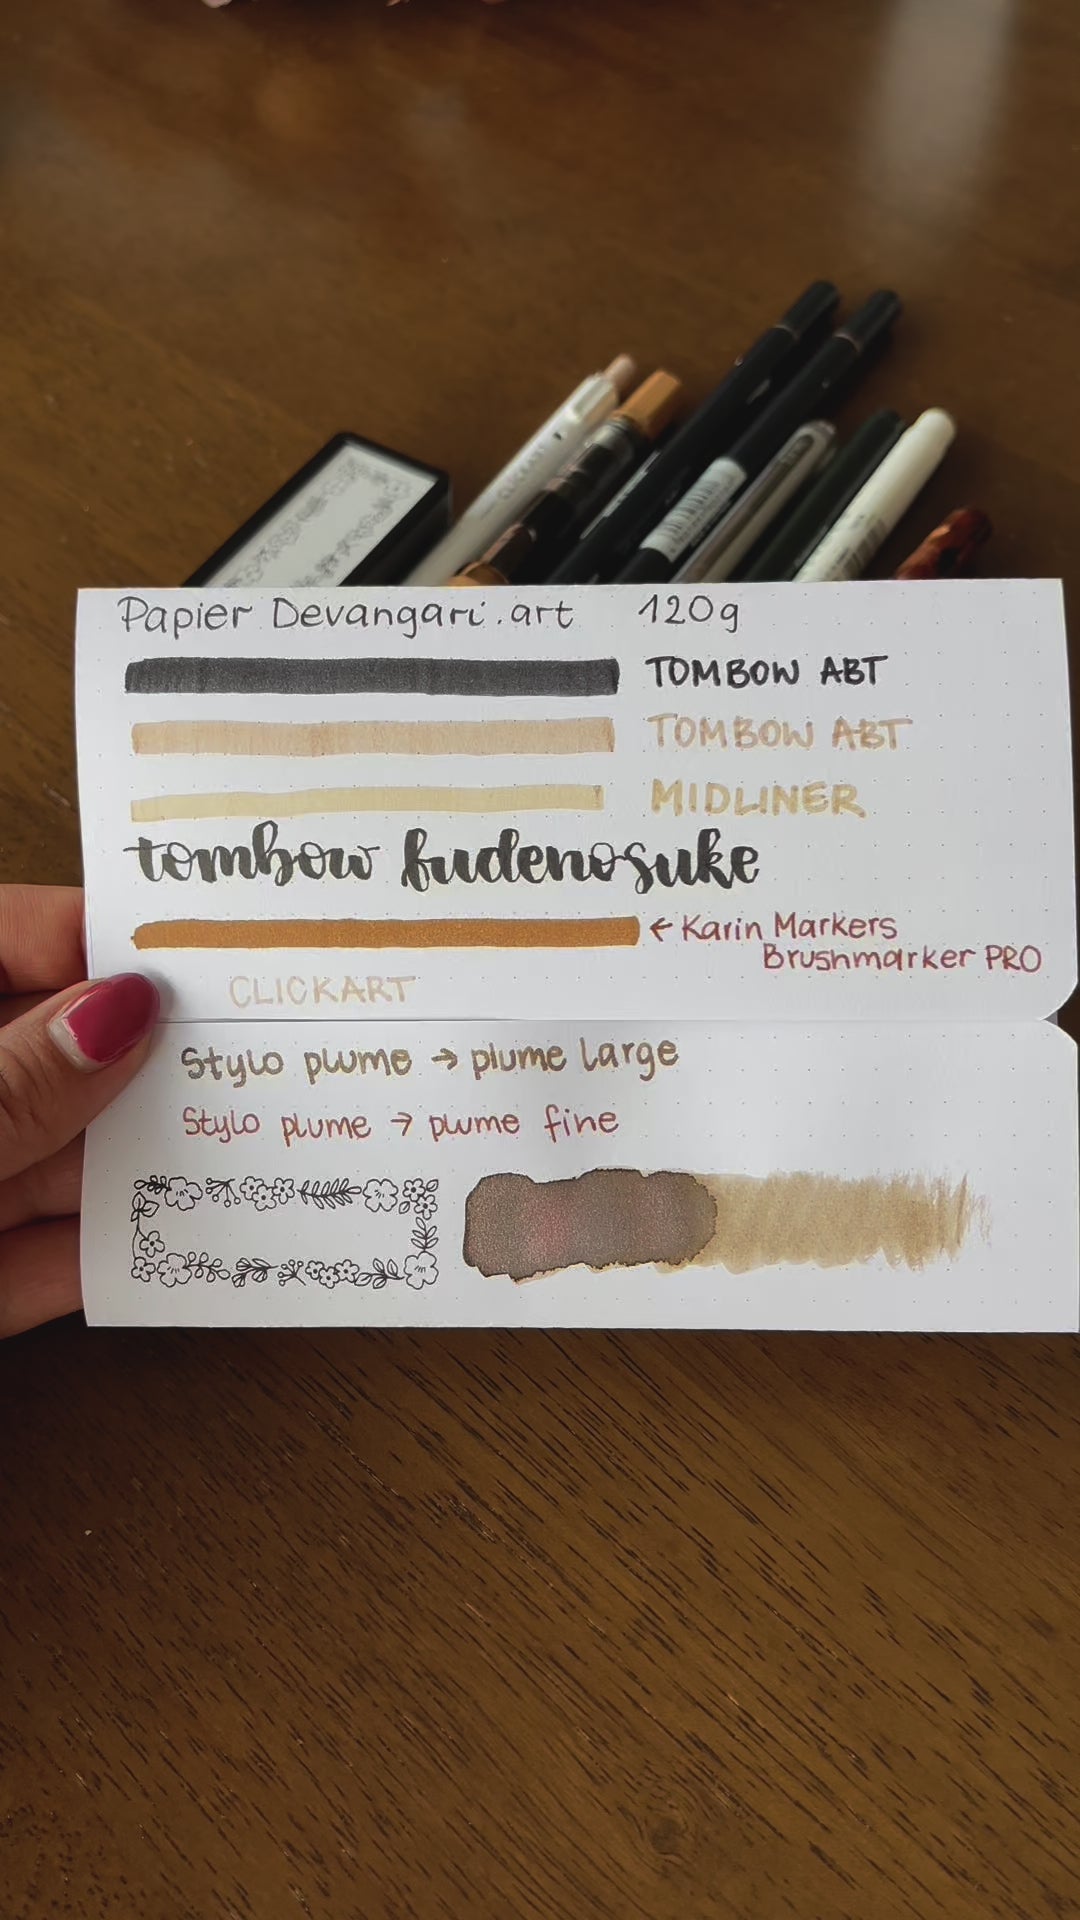 Papier Devangari.art 120g
TOMBOW ABT
TOMBOW ABT
MIDLINER
tombow fudenosuke
← Karin Markers
Brushmarker PRO
CLICKART
Stylo plume → plume large
Stylo plume → plume fine